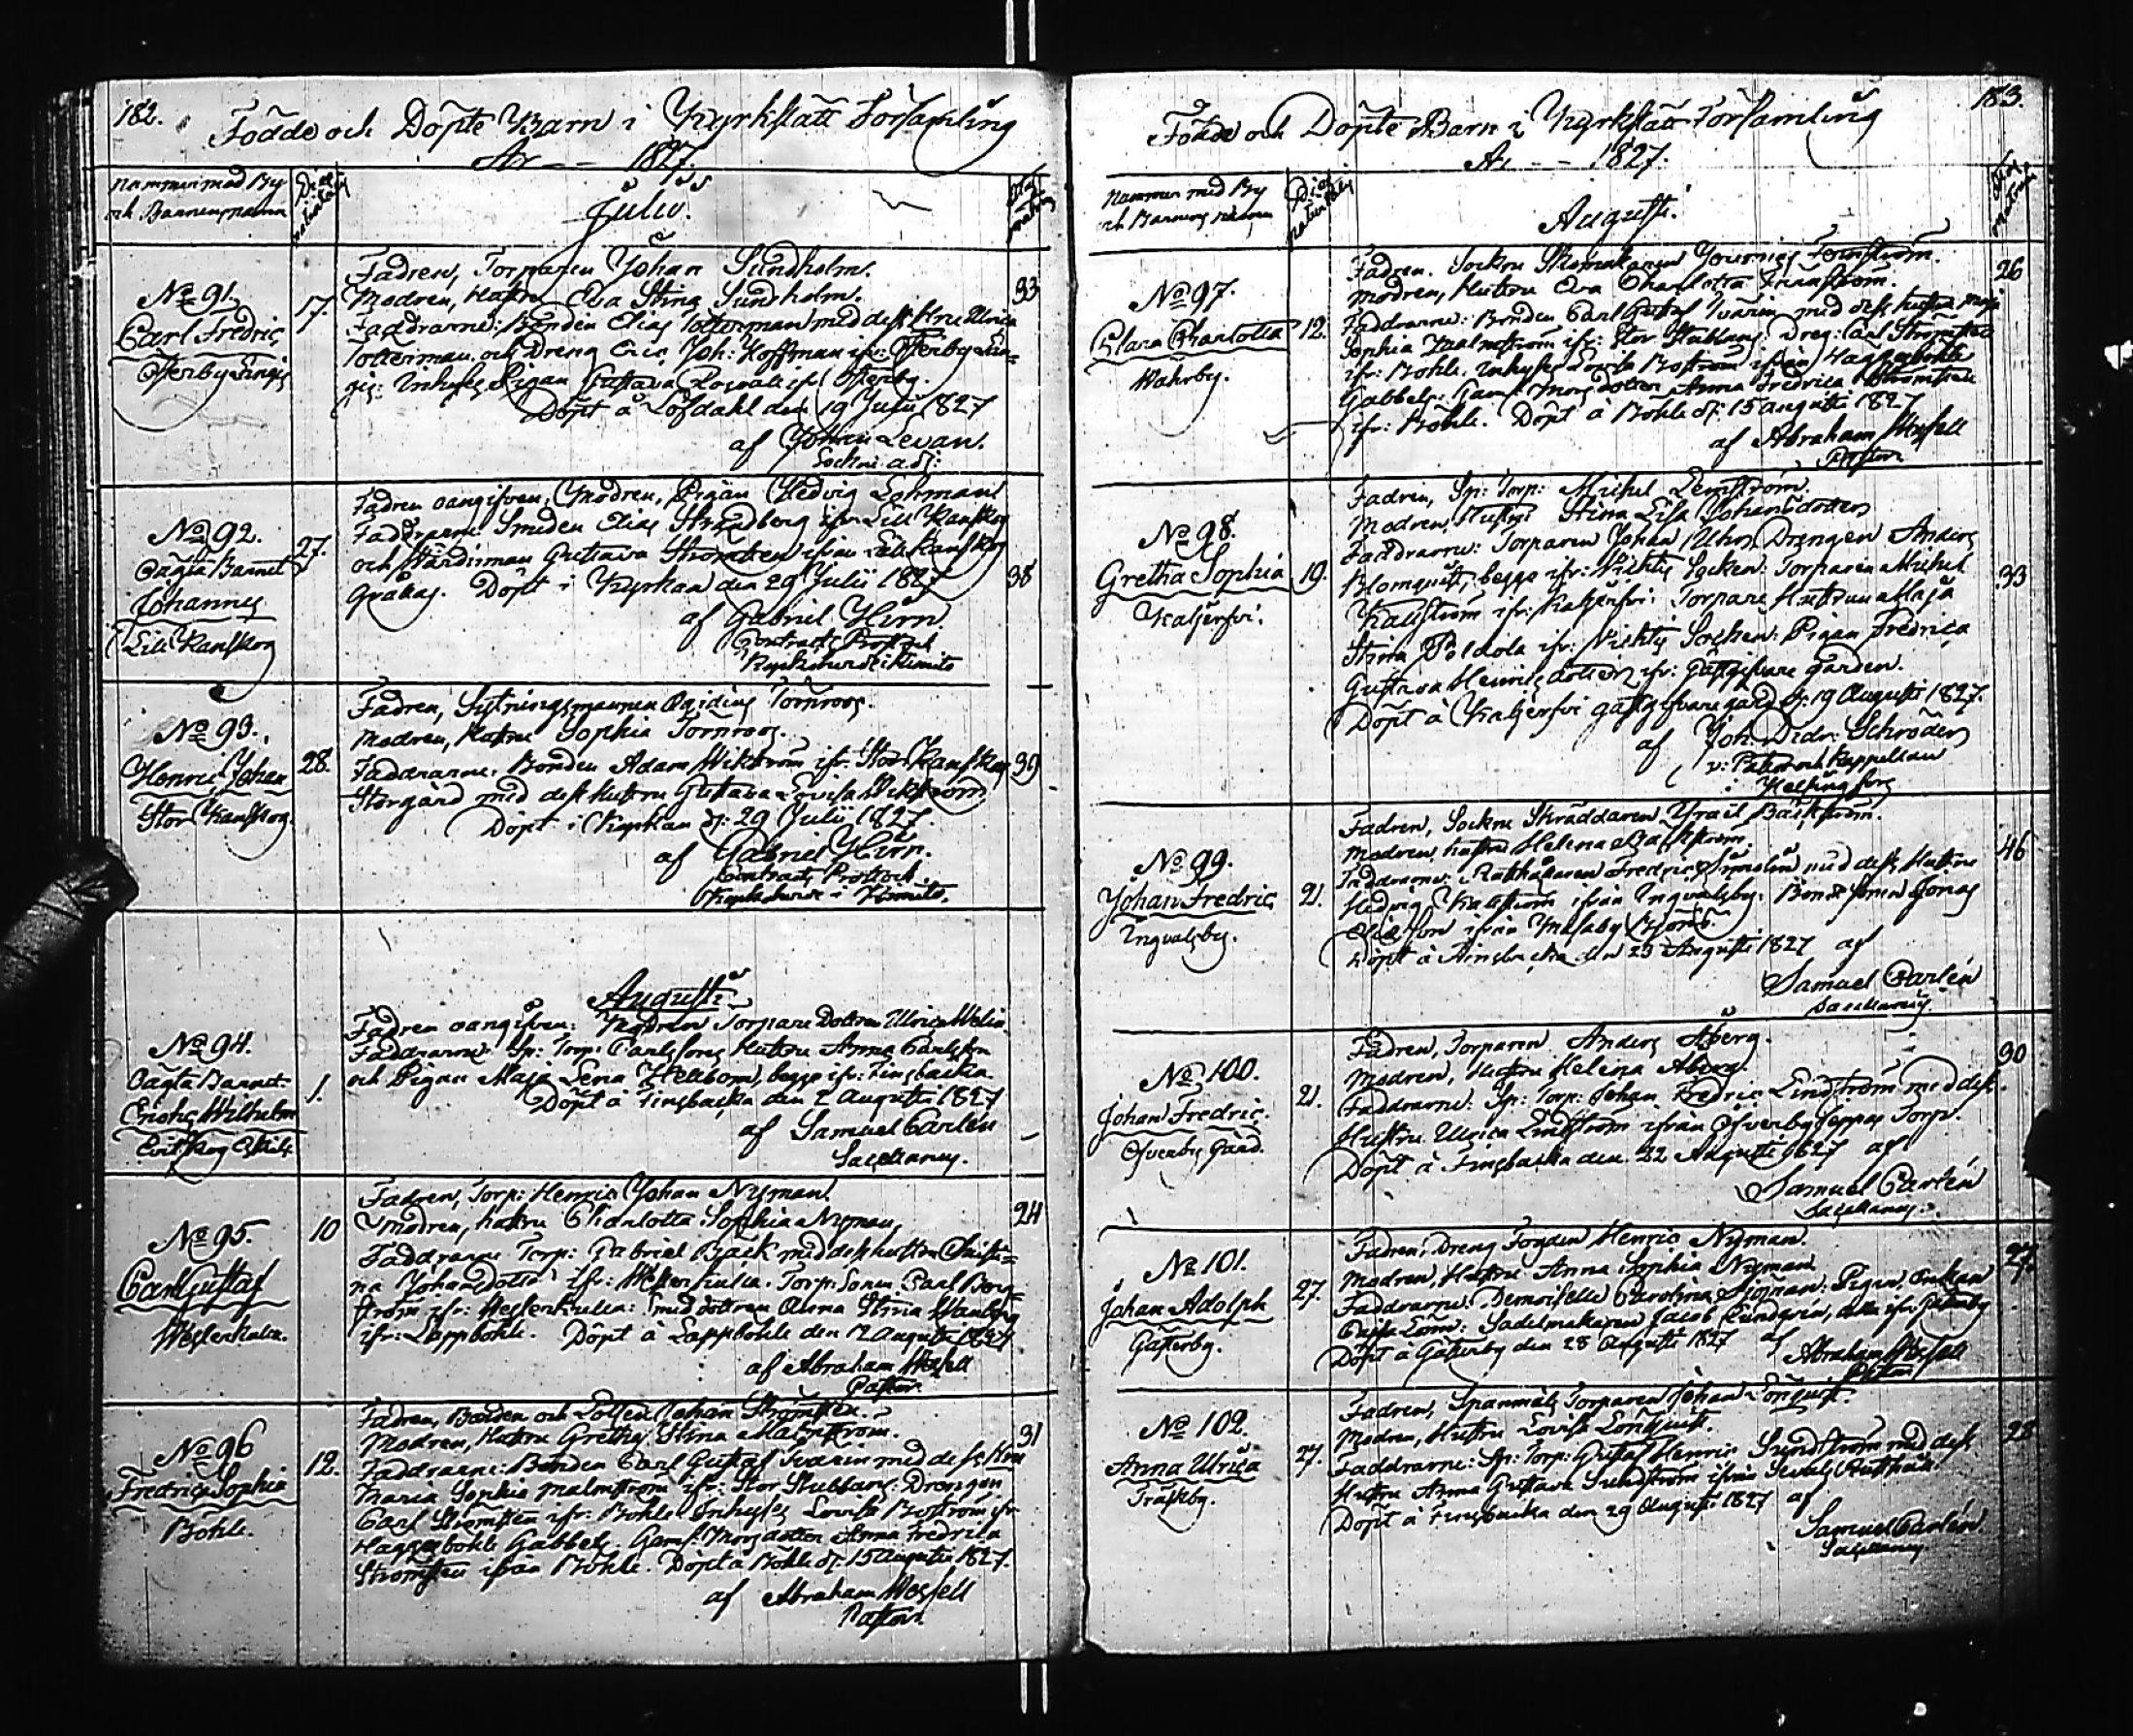 182.
Födde och Döpte Barn i Kyrkslätt Församling
År -- 1827.
Nammen med By
och Barnens namn
Julii.
No 91.
Carl Fredric
Österby Lings
17.
Fadren, Torparen Johan Sundholm.
Modren, Hustru Eva Stina Sundholm.
33
Faddrarne: Bonden Elias Tötterman med dess Hru Ulrica
Tötterman och Dreng Eric Joh: Hoffman ifr: Österby Lin-
gis: Inhyses Pigan Gustava ifr Österby.
Döpt å Löfdahl den 19 Julii 1827
af Johan Levan.
Sockne adj:
No 92.
Oägta Barnet
Johannes
Lill Kanskog
27.
Fadren oangifven, Modren, Pigan Hedvig Lohman
Faddrarne Smeden Elias Strandberg ifr Lill Kanskog
och Gustava ifrån Lill Kanskog
38
Gråbas. Döpt i Kyrkan den 29 Julii 1827
af Gabriel Hirn.
Contracts Prost och
Kyrkoherde i Kimito
No 93.
Henric Johan
Stor Kanskog.
28.
Fadren, Sytningsmannen Egidius Törnroos.
Modren, Hustru Sophia Törnroos.
Faddrarne. Bonden Adam Wikström ifr. Stor Kanskog
39
Storgård med dess Hustru Gustava Lovisa Wikström
Döpt i Kyrkan d: 29 Julii 1827.
af Gabriel Hirn.
Contracts Prost och
Kyrkoherde i Kimito.
Augusti
No 94.
Oägta Barnet
Erichs Wilhelm
Evitskog Eskils
1.
Fadren oangifven: Modren Torpare Dottren Ulrica Welin
Faddrarne: Sp: Torp: Carlsfors Hustru Anna Carlsfors
och Pigan Maja Lena Hellbom, begge ifr: Finsbacka
Döpt å Finsbacka den 2 Augusti 1827
af Samuel Carlén
Sacellanus.
No 95.
Carl Gustaf
Westerkulla.
10
Fadren, Torp: Henric Johan Nyman.
24
Modren, Hustru Charlotta Sophia Nyman,
Faddrarne Torp: Gabriel Bäck med dess hustru Christi-
na Johansdotter ifr: Westerkulla. Torp: Sonen Carl Berg-
ström ifr: Westerkulla: Smed dottren Anna Stina
ifr: Lappböhle. Döpt å Lappböhle den 12 Augusti 1827
af Abraham Wessell
Pastor.
No 96
Fredrica Sophia
Böhle.
12.
Fadren, Bonden och Johan Strömsten.
Modren, Hustru Gretha Stina Malmström.
31
Faddrarne: Bonden Carl Gustaf Ivarin med dess Hru
Maria Sophia Malmström ifr: Stor Stubbans: Drengen
Carl Strömsten ifr: Böhle Inhyses Lovisa Boström ifr
Haggesböhle Gabbels. Gamf: Mors dotter Anna Fredrica
Strömsten ifrån Böhle. Döpt å Böhle d: 15 Augusti 1827.
af Abraham Wessell
Pastor.
183.
Födde och Döpte Barn i Kyrkslätt Församling
År -- 1827.
Nammen med By
och Barnens namn
Augusti
No 97.
Clara Charlotta
Wahrby.
12.
Fadren. Sockne Skomakaren
26
Modren, Hustru Eva Charlotta
Faddrarne: Bonden Carl Gustaf Ivarin med dess hustru Maja
Sophia Malmström ifr: Stor Stubbans: Dreg: Carl Strömsten
ifr: Böhle. Inhyses Lovisa Boström ifrån Haggesböhle
Gabbels: Gamf: Mors dotter Anna Fredrica Strömsten
ifr: Böhle. Döpt å Böhle d: 15 Augusti 1827
af Abraham Wessell
Pastor
No 98.
Gretha Sophia
19.
Fadren, Sp: Torp: Michel Lemström
Modren, Hustru Stina Lisa Johansdotter
Faddrarne: Torparen Johan Drengen Anders
Blomqvist, begge ifr: Wichtis Socken: Torparen Michel
33
Kallström ifr: Torpare Hustrun Maja
Stina ifr: Wichtis Socken: Pigan Fredrica
Gustava Henricsdotter ifr: Gästgifvare gården.
Döpt å gästgifvare gård d: 19 Augusti 1827.
af Joh: Didr: Schröder
v: Pastor och Kappellan
i Helsingfors
No 99.
Johan Fredric
Ingvalsby.
21.
Fadren, Sockne Skräddaren Israil Bäckström.
Modren, hustru Helena
46
Faddrarne: Fredric med dess Hustru
Hedvig Kallström ifrån Ingvalsby: Bonde sonen Jonas
ifrån Masaby Björns.
Döpt å Finsbacka den 23 Augusti 1827 af
Samuel Carlén
Sacellanus.
No 100.
Johan Fredric.
Öfverby Gård.
21.
Fadren, Torparen Anders Åberg.
30
Modren, Hustru Helena Åberg.
Faddrarne: Sp: Torp: Johan Fredric Lindström med dess
Hustru Ulrica Lindström ifrån Öfverby Seppas Torp.
Döpt å Finsbacka den 22 Augusti 1827 af
Samuel Carlén
Sacellanus.
No 101.
Johan Adolph
Gästerby.
27.
Fadren, Dreng Fogden Henric Nyman.
27.
Modren, Hustru Anna Sophia Nyman
Faddrarne: Demoiselle Carolina Sjöman: Pigan
Sadelmakaren Jacob Lundgren, alla ifr: Gästerby
Döpt å Gästerby den 28 Augusti 1827 af
Abraham Wessell
Pastor
No 102.
Anna Ulrica
Träskby.
27.
Fadren, Spanmåls Torparen Johan Lönqvist.
Modren, Hustru Lovisa Lönqvist.
28
Faddrarne: Sp: Torp: Gustaf Henric Sundström med dess
Hustru Anna Gustava Sundström ifrån
Döpt å Finsbacka den 29 Augusti 1827 af
Samuel Carlén
Sacellanus